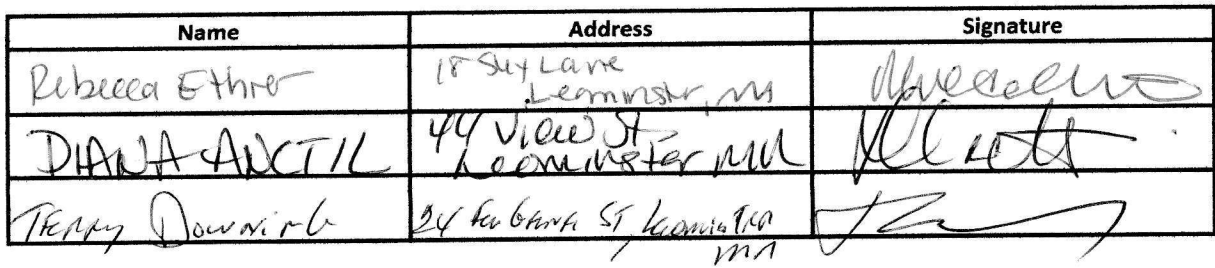 Name Address Signature
Rebecca Ethier 18 Sky Lane
Leominster, MA
DIANA ANCTIL 44 View St
Leominster MA
TERRY Downing 24 St, Leominster
MA